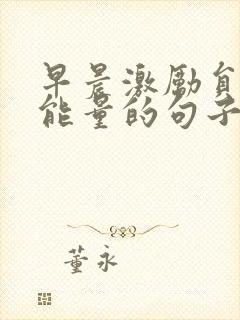 早晨激励自
能量的句子
董永